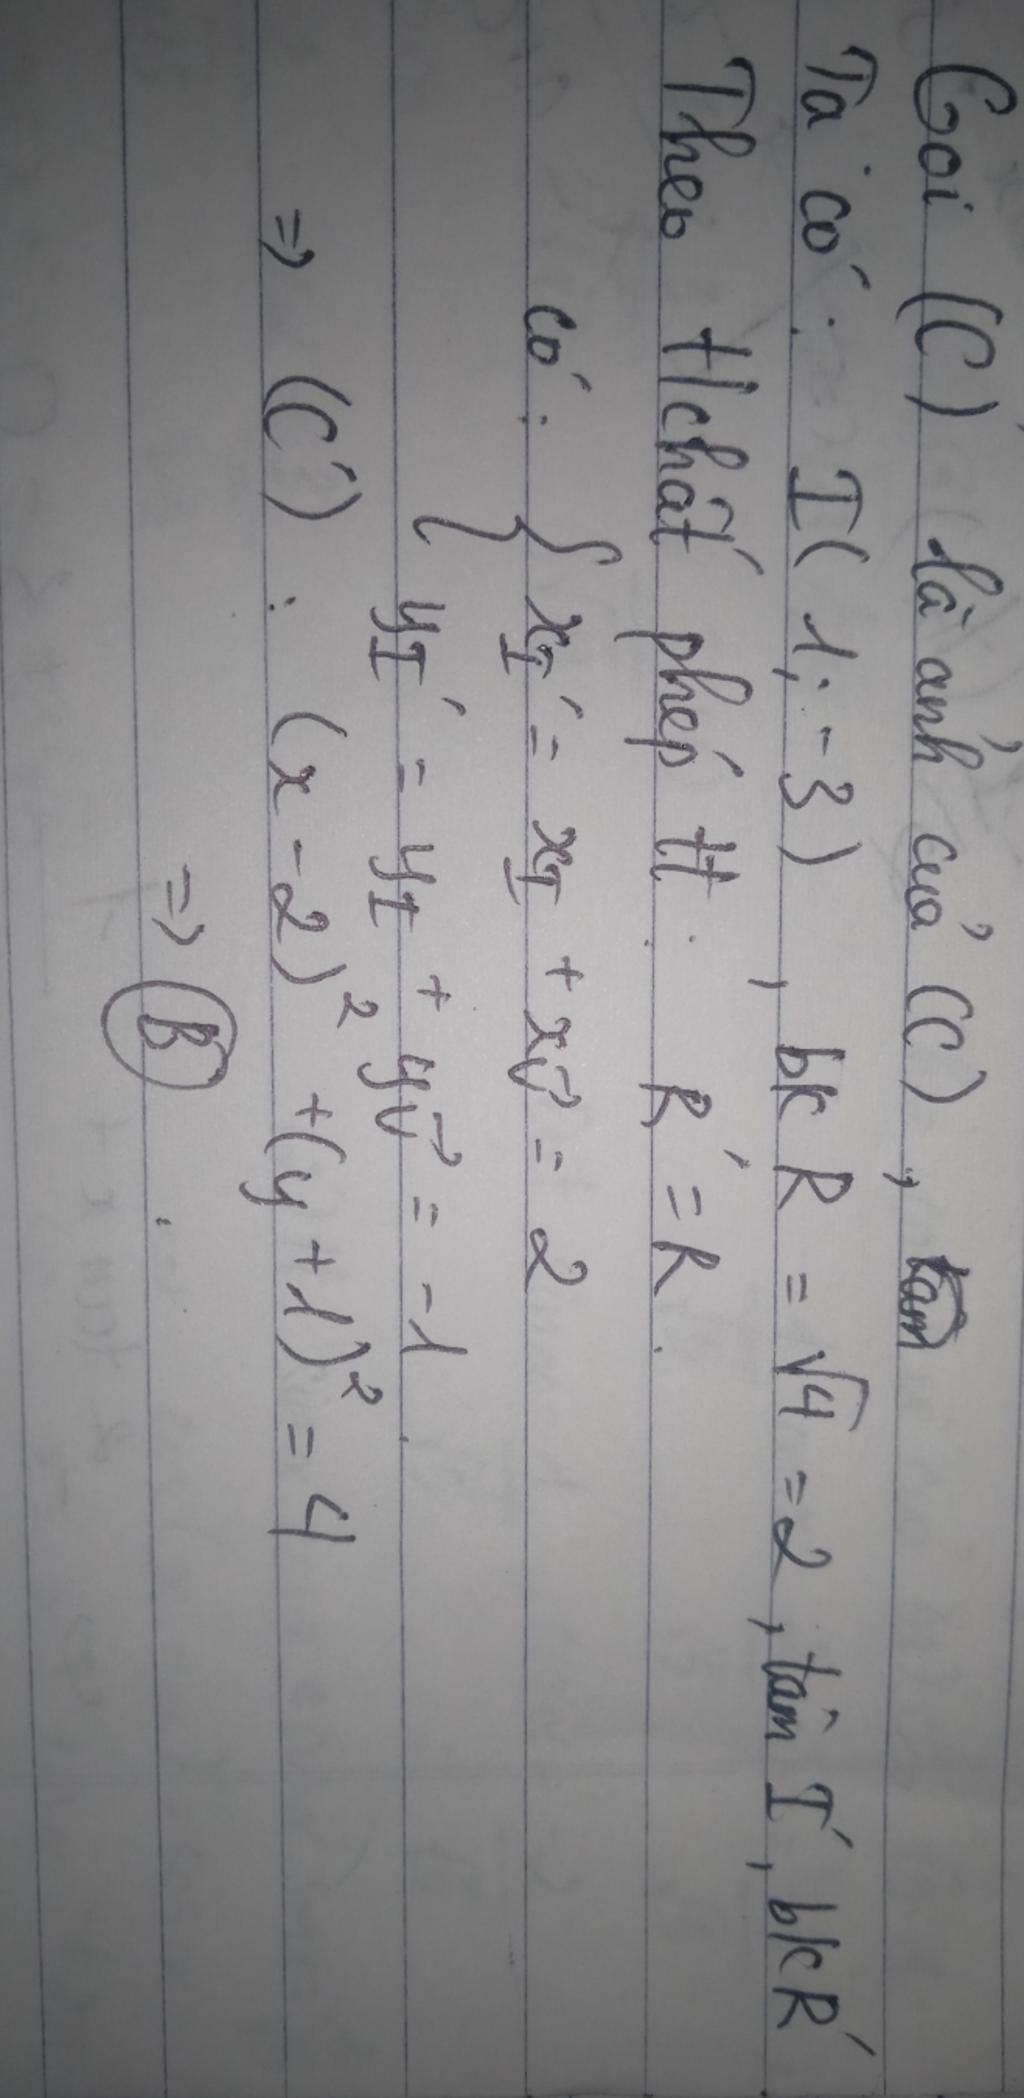 Gọi (C') là ảnh của (C), tâm
Ta có: I(1;-3), bk R = √4 = 2, tâm I', bk R'
Theo t/chất phép tt: R' = R.
có: { x_I' = x_I + x_v⃗ = 2
{ y_I' = y_I + y_v⃗ = -1.
=> (C'): (x-2)² + (y+1)² = 4
=> B.